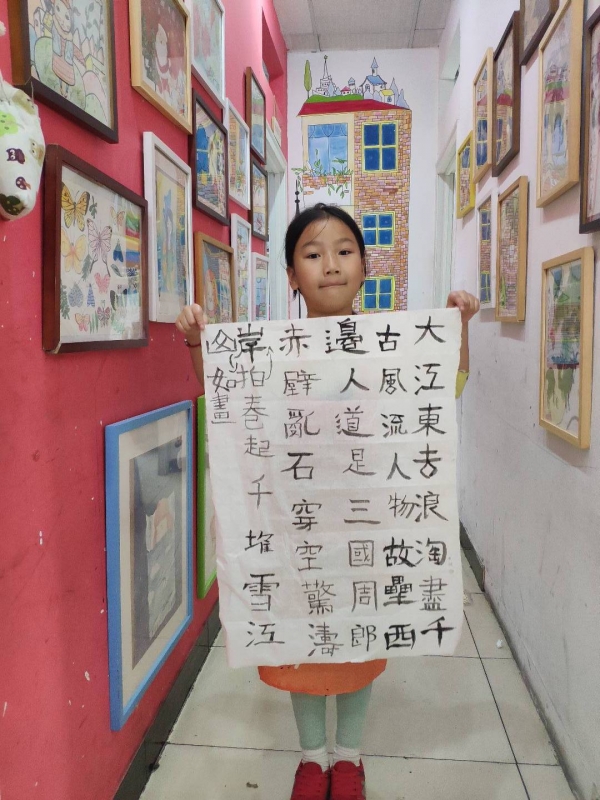 大江東去浪淘盡千
古風流人物故壘西
邊人道是三國周郎
赤壁亂石穿空驚濤
岸拍卷起千堆雪江
如畫